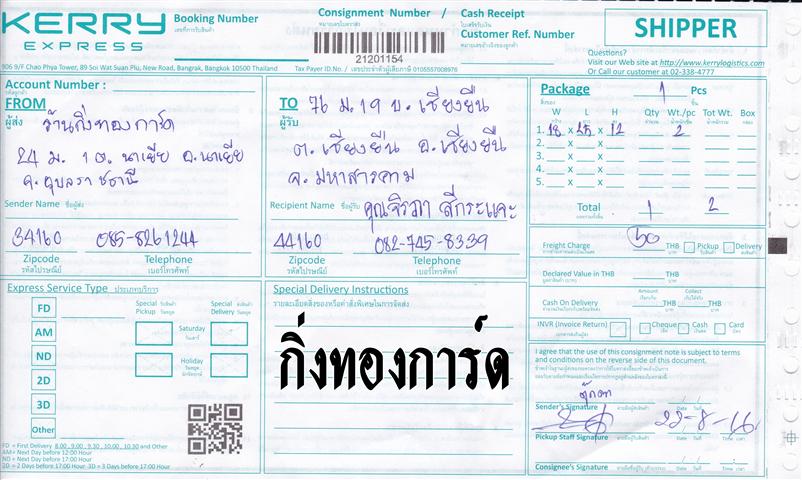 KERRY EXPRESS
Booking Number
เลขที่การรับสินค้า
Consignment Number /
หมายเลขใบตราส่ง
21201154
Cash Receipt
ใบเสร็จรับเงิน
Customer Ref. Number
หมายเลขอ้างอิงของลูกค้า
SHIPPER
Questions?
Visit our Web site at http://www.kerrylogistics.com
Or Call our customer at 02-338-4777
906 9/F Chao Phya Tower, 89 Soi Wat Suan Plu, New Road, Bangrak, Bangkok 10500 Thailand
Tax Payer ID.No. / เลขประจำตัวผู้เสียภาษี 0105557008976
Account Number :
FROM
ผู้ส่ง
ร้านกิ่งทองการ์ด
24 ม. 1 ต. นาเยีย อ. นาเยีย
จ. อุบลราชธานี
Sender Name ชื่อผู้ส่ง
34160 085-8261244
Zipcode Telephone
รหัสไปรษณีย์ เบอร์โทรศัพท์
TO
ผู้รับ
76 ม. 19 บ. เชียงยืน
ต. เชียงยืน อ. เชียงยืน
จ. มหาสารคาม
Recipient Name ชื่อผู้รับ
44160 082-745-8339
Zipcode Telephone
รหัสไปรษณีย์ เบอร์โทรศัพท์
Package 1 Pcs
W L H Qty Wt./pc Tot Wt. Box
1. 18 x 25 x 12 2
2. x x
3. x x
4. x x
5. x x
Total 1 2
Freight Charge 50 THB Pickup Delivery
Declared Value in THB THB
Amount Collect
Cash On Delivery THB THB
INVR (Invoice Return) Cheque Cash Card
I agree that the use of this consignment note is subject to
terms and conditions on the reverse side of this document.
ตุ๊กตา
Sender's Signature Date
22-8-16
Pickup Staff Signature Date Time
Consignee's Signature Date Time
Express Service Type ประเภทบริการ
FD
AM
ND
2D
3D
Other
Special Pickup
Special Delivery
Saturday
วันเสาร์
Holiday
วันหยุด
FD = First Delivery 8.00 , 9.00 , 9.30 , 10.00 , 10.30 and Other
AM= Next Day before 12:00 Hour
ND = Next Day before 17:00 Hour
2D = 2 Days before 17:00 Hour 3D = 3 Days before 17:00 Hour
Special Delivery Instructions
รายละเอียดสิ่งของหรือคำสั่งพิเศษในการจัดส่ง
กิ่งทองการ์ด